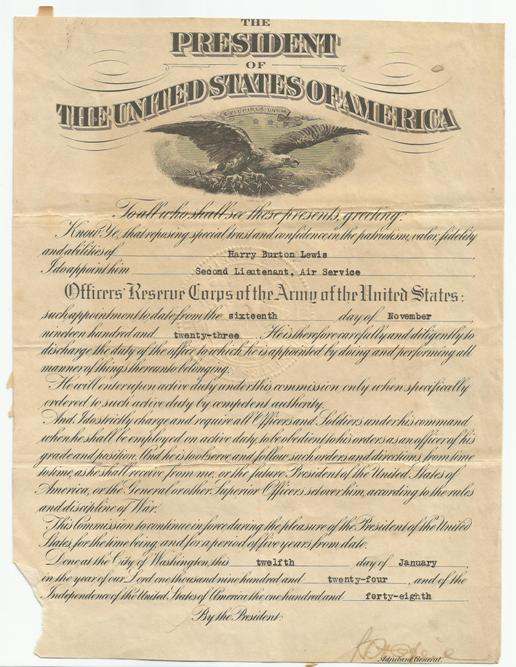 THE
PRESIDENT
OF
THE UNITED STATES OF AMERICA
To all who shall see these presents, greeting:
Know Ye, that reposing special trust and confidence in the patriotism, valor, fidelity
and abilities of Harry Burton Lewis
I do appoint him Second Lieutenant, Air Service
Officers' Reserve Corps of the Army of the United States:
such appointment to date from the sixteenth day of November
nineteen hundred and twenty-three. He is therefore carefully and diligently to
discharge the duty of the office to which he is appointed by doing and performing all
manner of things thereunto belonging.
He will enter upon active duty under this commission only when specifically
ordered to such active duty by competent authority.
And I do strictly charge and require all Officers and Soldiers under his command
when he shall be employed on active duty, to be obedient to his orders as an officer of his
grade and position. And he is to observe and follow such orders and directions, from time
to time, as he shall receive from me, or the future President of the United States of
America, or the General or other Superior Officers set over him, according to the rules
and discipline of War.
This Commission to continue in force during the pleasure of the President of the United
States, for the time being, and for a period of five years from date.
Done at the City of Washington, this twelfth day of January,
in the year of our Lord one thousand nine hundred and twenty-four, and of the
Independence of the United States of America the one hundred and forty-eighth
By the President:
Adjutant General.